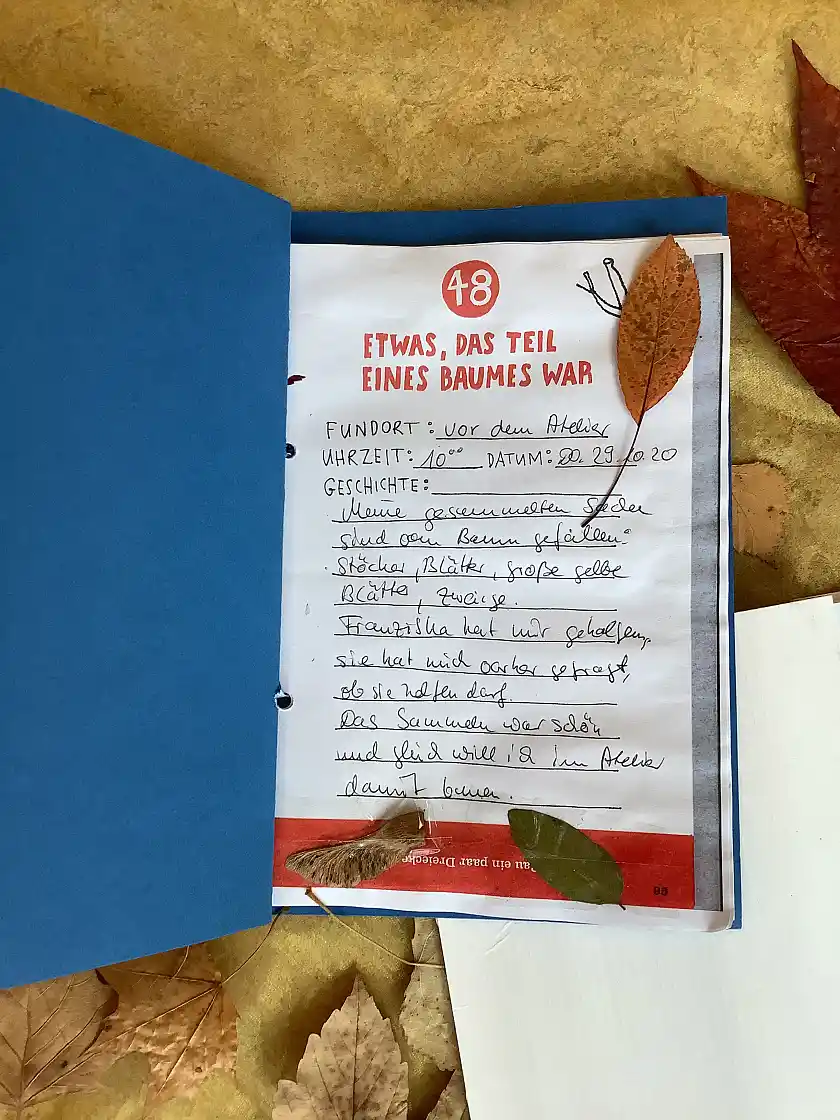 48
ETWAS, DAS TEIL
EINES BAUMES WAR
FUNDORT: vor dem Atelier
UHRZEIT: 10⁰⁰ DATUM: 29.10.20
GESCHICHTE:
"Meine gesammelten Sachen
sind vom Baum gefallen."
Stöcker, Blätter, große gelbe
Blätter, Zweige.
Franziska hat mir geholfen,
sie hat mich vorher gefragt,
ob sie helfen darf.
Das Sammeln war schön
und gleich will ich im Atelier
damit bauen.
Bau ein paar Dreiecke
95